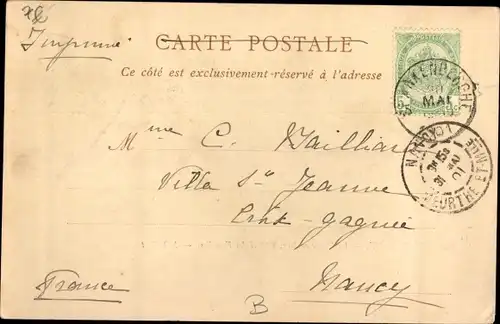 Imprimé
CARTE POSTALE
Ce côté est exclusivement réservé à l'adresse
MAI
NANCY
MEURTHE ET MLLE
Mme C. Maillian
Villa Ste Jeanne
Croix-gagnée
Nancy
France
B